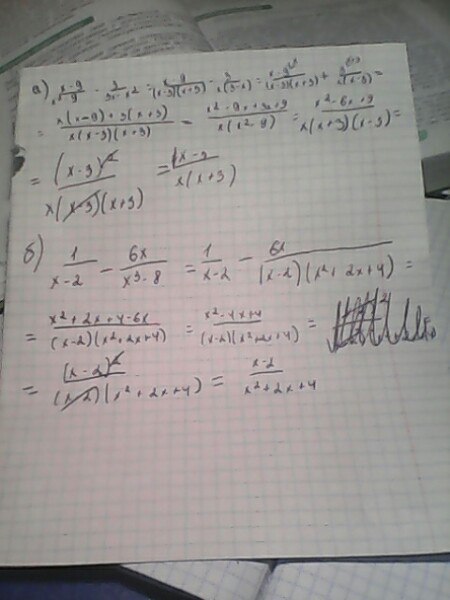 а) (x-9)/(x²-9) - 3/(3x-x²) = (x-9)/((x-3)(x+3)) - 3/(x(3-x)) = (x-9)/((x-3)(x+3)) + 3/(x(x-3)) =
= (x(x-9)+3(x+3))/(x(x-3)(x+3)) = (x²-9x+3x+9)/(x(x²-9)) = (x²-6x+9)/(x(x+3)(x-3)) =
= (x-3)²/(x(x-3)(x+3)) = (x-3)/(x(x+3))
б) 1/(x-2) - 6x/(x³-8) = 1/(x-2) - 6x/((x-2)(x²+2x+4)) =
= (x²+2x+4-6x)/((x-2)(x²+2x+4)) = (x²-4x+4)/((x-2)(x²+2x+4)) =
= (x-2)²/((x-2)(x²+2x+4)) = (x-2)/(x²+2x+4)